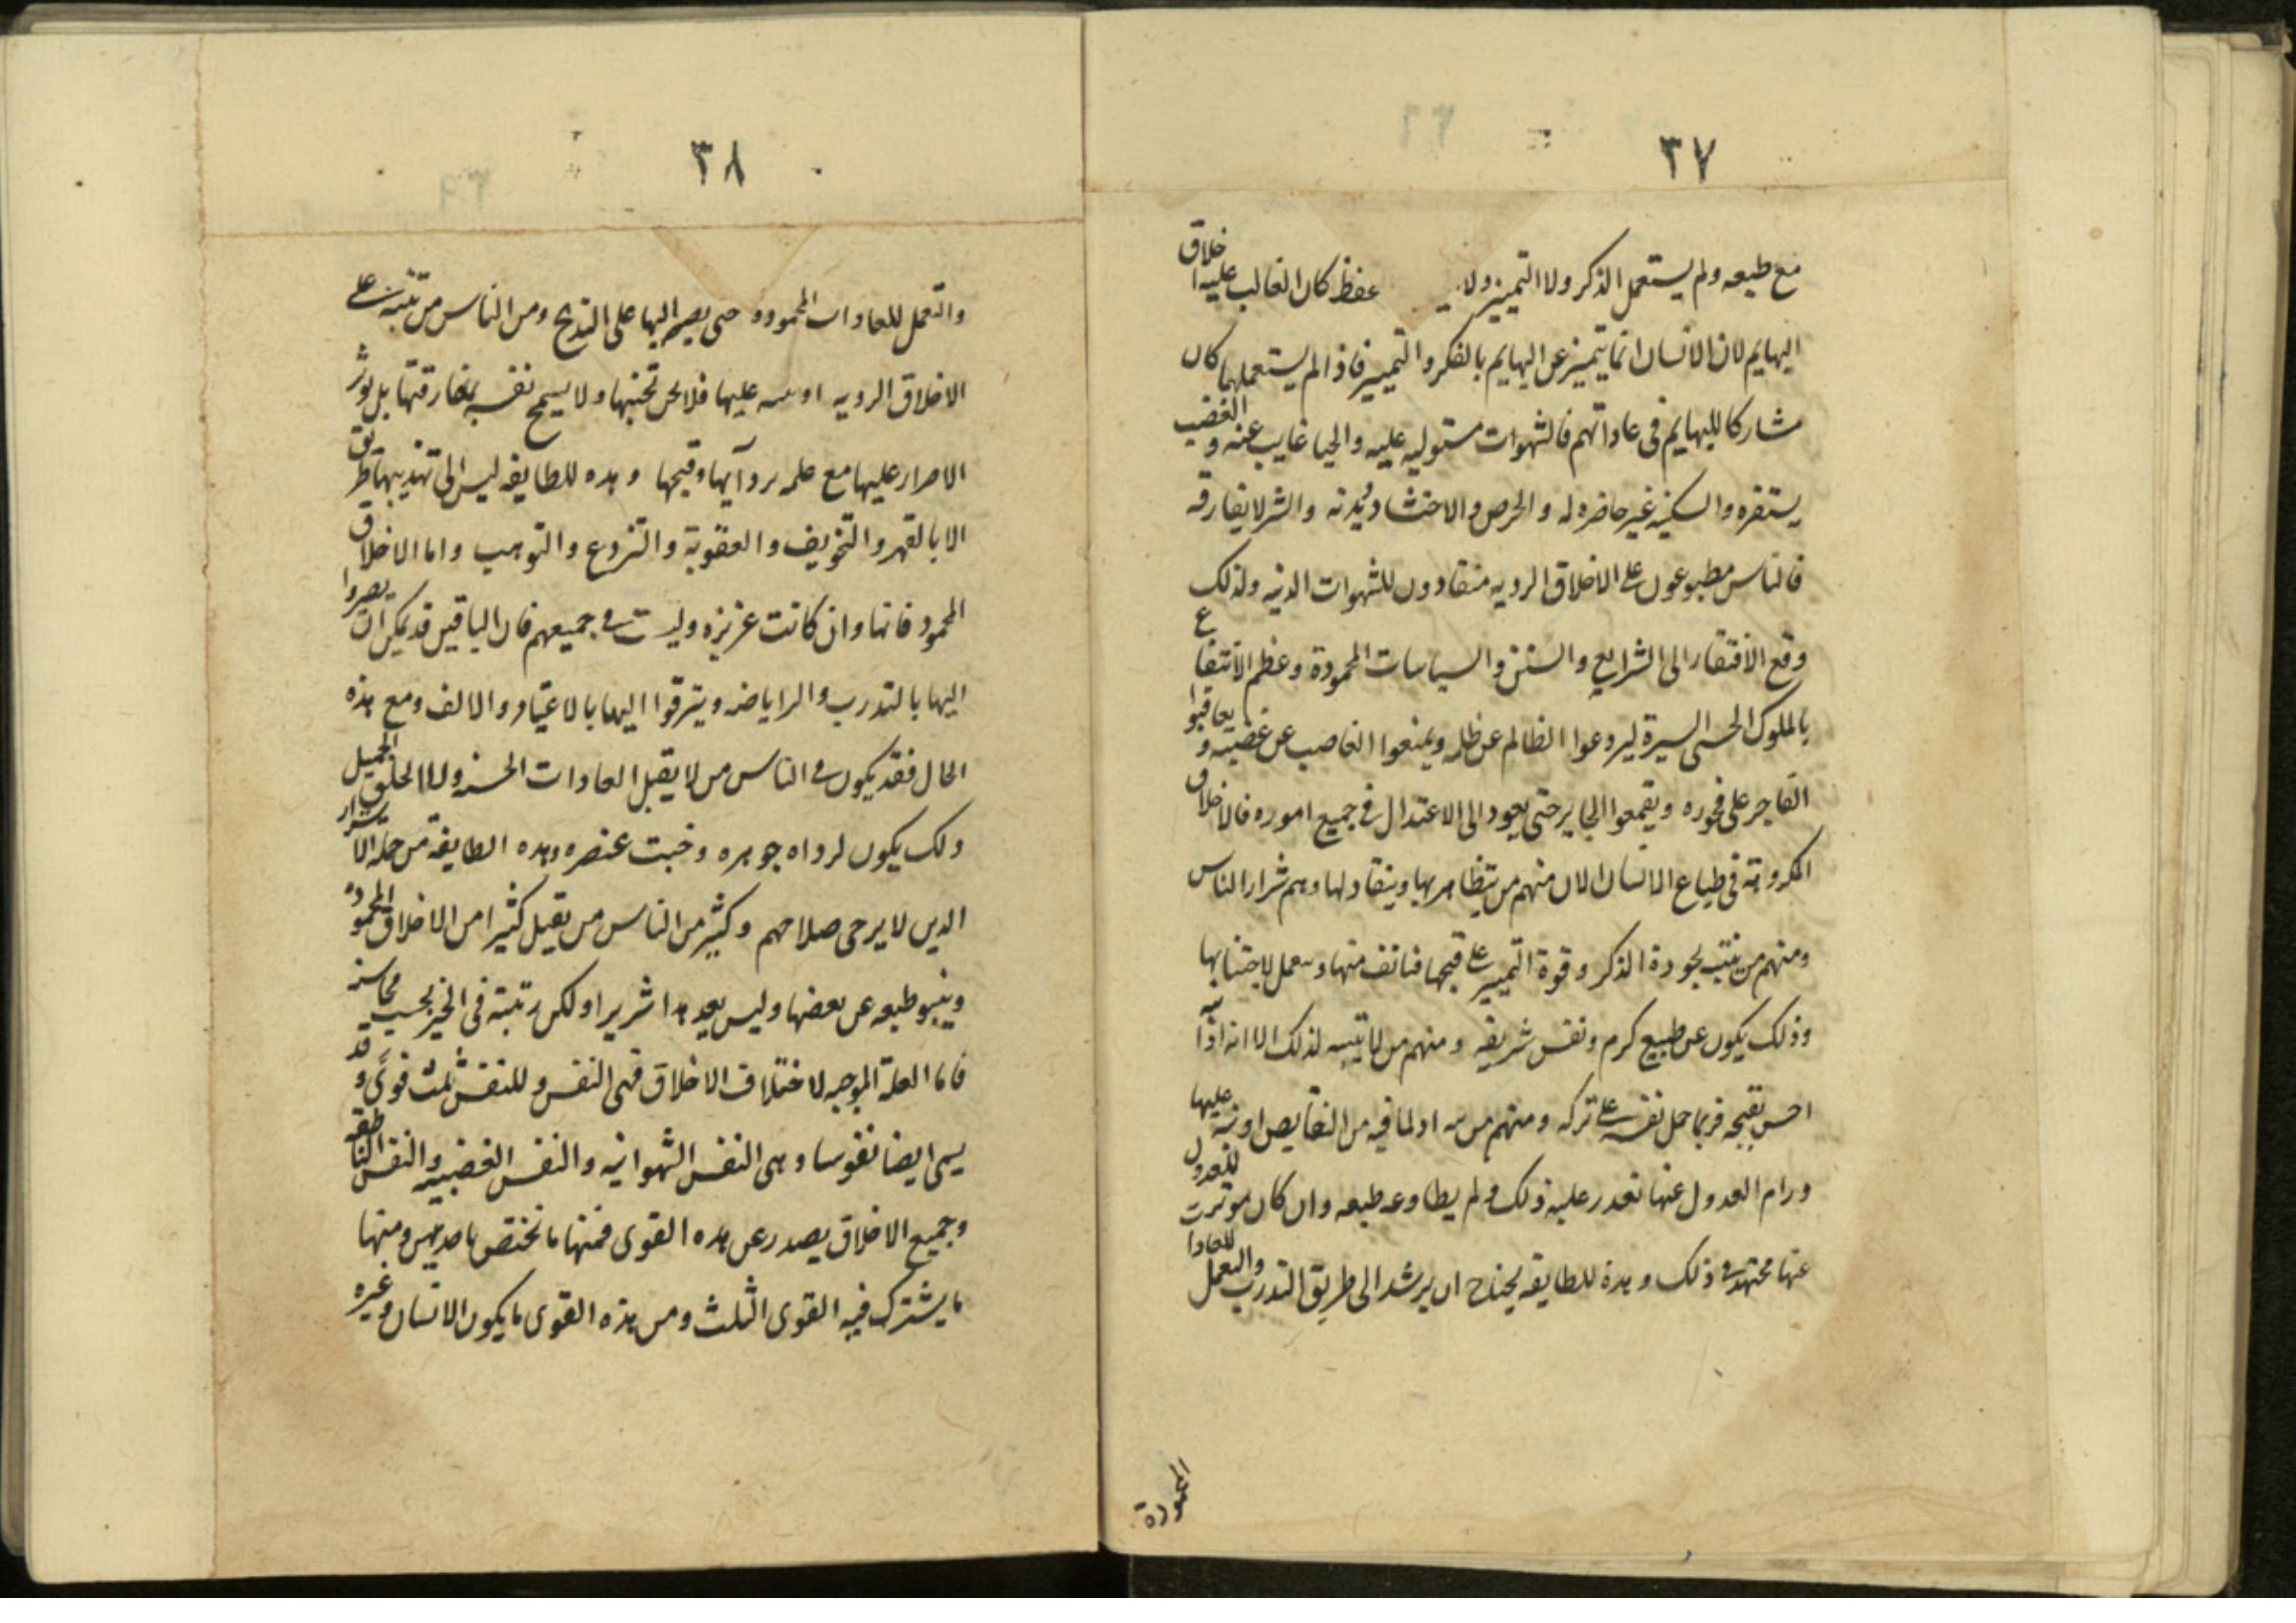 ٣٧
مع طبعه ولم يستعمل الذكر ولا التمييز ولا عفظ كان الغالب عليه اخلاق
البهايم لان الانسان انما يتميز عن البهايم بالفكر والتمييز فاذا لم يستعملهما كان
مشاركا للبهايم فى عاداتهم فالشهوات مستوليه عليه والحيا غايب عنه والغضب
يستفزه والسكينه غير حاضره له والحرص والاحتشاد ديدنه والشر لا يفارقه
فالناس مطبوعون على الاخلاق الرديه منقادون للشهوات الدنيه ولذلك
وقع الافتقار الى الشرايع والسنن والسياسات المحمودة وعظم الانتفاع
بالملوك الحسنى السيرة ليردعوا الظالم عن ظلمه ويمنعوا الغاصب عن غضبه ويعاقبوا
الفاجر على فجوره ويقمعوا الجاير حتى يعود الى الاعتدال في جميع اموره فالاخلاق
المكروهة في طباع الانسان الا ان منهم من يتظاهر بها وينقاد لها وهم شرار الناس
ومنهم من ينتبه بجودة الذكر وقوة التمييز على قبحها فيانف منها ويعمل لاجتنابها
وذلك يكون عن طبيع كرم ونفس شريفه ومنهم من لا يتنبه لذلك الا انه اذا نبه
احس بقبحه فربما حمل نفسه على تركه ومنهم من اذا لما فيه من النقايص او نبه عليها
ورام العدول عنها تعذر عليه ذلك ولم يطاوعه طبعه وان كان موثرت للعدول
عنها مجتهد في ذلك وهذه الطايفه يحتاج ان يرشد الى طريق التدرب والتعمل للعادا
المحمودة
٣٨
والتعمل للعادات المحموده حتى يصير اليها على التدريج ومن الناس من تنبه على
الاخلاق الرديه او نبه عليها فلا يحن تجنبها ولا يسمح نفسه بمفارقتها بل يوثر
الاصرار عليها مع علمه برداتها وقبحها وهذه الطايفه ليس الى تهذيبها طريق
الا بالقهر والتخويف والعقوبة والتردع والترهيب واما الاخلاق
المحمود فانها وان كانت غريزه وليست في جميعهم فان الباقين قد يمكن ان يصيروا
اليها بالتدرب والراياضه ويترقوا اليها بالاعتياد والالف ومع هذه
الحال فقد يكون في الناس من لا يقبل العادات الحسنه ولا الخلق الجميل
وذلك يكون لرداه جوهره وخبث عنصره وهذه الطايفة من جمله الاشرار
الذين لا يرجى صلاحهم وكثير من الناس من يقبل كثيرا من الاخلاق المحمودة
وينبو طبعه عن بعضها وليس يعد هذا شريرا ولكن رتبته في الخير بحسب محاسنه
فاما العلة الموجبه لاختلاف الاخلاق فهى النفس وللنفس ثلث قوى وقد
يسمى ايضا نفوسا وهى النفس الشهوانيه والنفس الغضبيه والنفس الناطقه
وجميع الاخلاق يصدر عن هذه القوى فمنها ما تختص باحديهن ومنها
ما يشترك فيه القوى الثلث ومن هذه القوى ما يكون الانسان وغيره